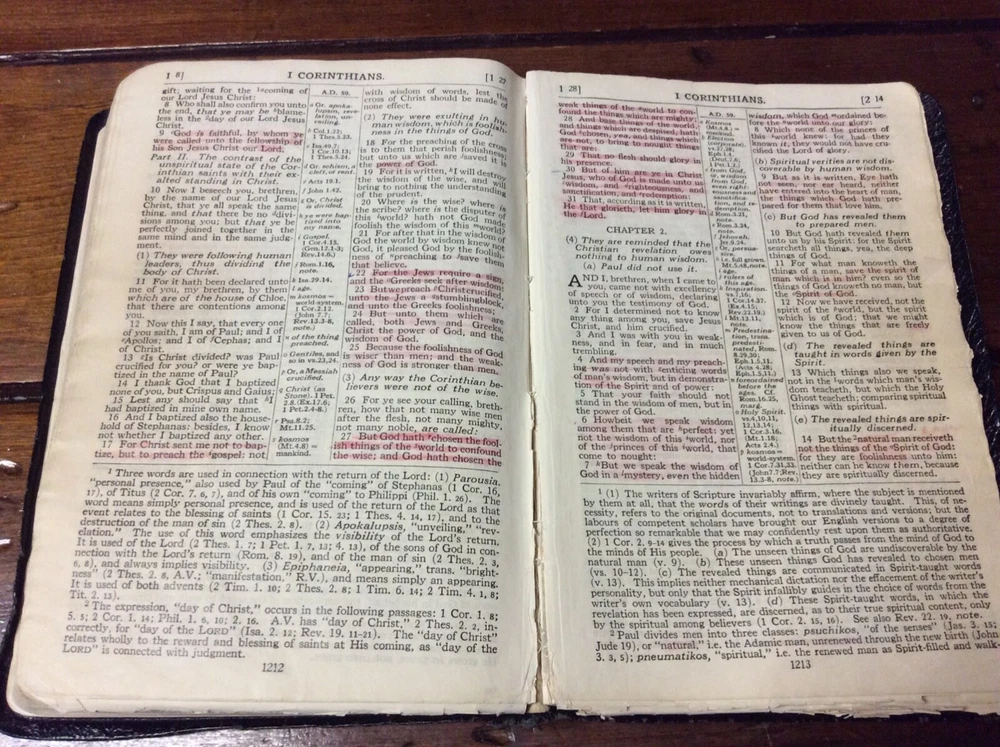 1 8]
I CORINTHIANS.
[1 27
gift; waiting for the coming of
our Lord Jesus Christ:
8 Who shall also confirm you unto
the end, that ye may be blame-
less in the day of our Lord Jesus
Christ.
9 God is faithful, by whom ye
were called unto the fellowship of
his Son Jesus Christ our Lord.
Part II. The contrast of the
unspiritual state of the Cor-
inthian saints with their ex-
alted standing in Christ.
10 Now I beseech you, brethren,
by the name of our Lord Jesus
Christ, that ye all speak the same
thing, and that there be no divi-
sions among you; but that ye be
perfectly joined together in the
same mind and in the same judg-
ment.
(1) They were following human
leaders, thus dividing the
body of Christ.
11 For it hath been declared unto
me of you, my brethren, by them
which are of the house of Chloe,
that there are contentions among
you.
12 Now this I say, that every one
of you saith, I am of Paul; and I of
Apollos; and I of Cephas; and I
of Christ.
13 Is Christ divided? was Paul
crucified for you? or were ye bap-
tized in the name of Paul?
14 I thank God that I baptized
none of you, but Crispus and Gaius;
15 Lest any should say that I
had baptized in mine own name.
16 And I baptized also the house-
hold of Stephanas: besides, I know
not whether I baptized any other.
17 For Christ sent me not to bap-
tize, but to preach the gospel: not
A.D. 59.
a Or, apoka-
lupsin, reve-
lation, un-
veiling.
b Col.1.22;
1 Thes.5.23.
c Isa.49.7;
1 Cor.10.13;
1 Thes.5.24.
e Or, schism, a
cleft, or rent.
f Acts 19.1.
f John 1.42.
g Or, Christ
is divided.
h ye were bap-
tized into
my name.
i Gospel.
1 Cor.4.15.
Gen.12.1-3;
Rev.14.6.)
j Rom.1.16,
note.
k Isa.29.14.
l age.
m kosmos =
world-system.
1 Cor.2.12.
(John 7.7;
Rev.13.3-8,
note.)
n of the thing
preached.
o Gentiles, and
so in vs.23,24.
p Or, a Messiah
crucified.
q Christ (as
Stone). 1 Pet.
2.8. (Ex.17.6;
1 Pet.2.4-8.)
r Psa.8.2;
Mt.11.25.
s kosmos
(Mt.4.8) =
mankind.
with wisdom of words, lest the
cross of Christ should be made of
none effect.
(2) They are exulting in hu-
man wisdom, which is foolish-
ness in the things of God.
18 For the preaching of the cross
is to them that perish foolishness;
but unto us which are saved it is
the power of God.
19 For it is written, I will destroy
the wisdom of the wise, and will
bring to nothing the understanding
of the prudent.
20 Where is the wise? where is
the scribe? where is the disputer of
this world? hath not God made
foolish the wisdom of this world?
21 For after that in the wisdom of
God the world by wisdom knew not
God, it pleased God by the foolish-
ness of preaching to save them
that believe.
22 For the Jews require a sign,
and the Greeks seek after wisdom:
23 But we preach Christ crucified,
unto the Jews a stumblingblock,
and unto the Greeks foolishness;
24 But unto them which are
called, both Jews and Greeks,
Christ the power of God, and the
wisdom of God.
25 Because the foolishness of God
is wiser than men; and the weak-
ness of God is stronger than men.
(3) Any way the Corinthian be-
lievers were not of the wise.
26 For ye see your calling, breth-
ren, how that not many wise men
after the flesh, not many mighty,
not many noble, are called:
27 But God hath chosen the fool-
ish things of the world to confound
the wise; and God hath chosen the
1 Three words are used in connection with the return of the Lord: (1) Parousia,
"personal presence," also used by Paul of the "coming" of Stephanas (1 Cor. 16,
17), of Titus (2 Cor. 7. 6, 7), and of his own "coming" to Philippi (Phil. 1. 26). The
word means simply personal presence, and is used of the return of the Lord as that
event relates to the blessing of saints (1 Cor. 15. 23; 1 Thes. 4. 14, 17), and to the
destruction of the man of sin (2 Thes. 2. 8). (2) Apokalupsis, "unveiling," "rev-
elation." The use of this word emphasizes the visibility of the Lord's return.
It is used of the Lord (2 Thes. 1. 7; 1 Pet. 1. 7, 13; 4. 13), of the sons of God in con-
nection with the Lord's return (Rom. 8. 19), and of the man of sin (2 Thes. 2. 3,
6, 8), and always implies visibility. (3) Epiphaneia, "appearing," trans. "bright-
ness" (2 Thes. 2. 8, A.V.; "manifestation," R.V.), and means simply an appearing.
It is used of both advents (2 Tim. 1. 10; 2 Thes. 2. 8; 1 Tim. 6. 14; 2 Tim. 4. 1, 8;
Tit. 2. 13).
2 The expression, "day of Christ," occurs in the following passages: 1 Cor. 1. 8;
5. 5; 2 Cor. 1. 14; Phil. 1. 6, 10; 2. 16. A.V. has "day of Christ," 2 Thes. 2. 2, in-
correctly, for "day of the LORD" (Isa. 2. 12; Rev. 19. 11-21). The "day of Christ"
relates wholly to the reward and blessing of saints at His coming, as "day of the
LORD" is connected with judgment.
1212
1 28]
I CORINTHIANS.
[2 14
weak things of the world to con-
found the things which are mighty;
28 And base things of the world,
and things which are despised, hath
God chosen, yea, and things which
are not, to bring to nought things
that are:
29 That no flesh should glory in
his presence.
30 But of him are ye in Christ
Jesus, who of God is made unto us
wisdom, and righteousness, and
sanctification, and redemption:
31 That, according as it is written,
He that glorieth, let him glory in
the Lord.
CHAPTER 2.
(4) They are reminded that the
Christian revelation owes
nothing to human wisdom:
(a) Paul did not use it.
AND I, brethren, when I came to
you, came not with excellency
of speech or of wisdom, declaring
unto you the testimony of God.
2 For I determined not to know
any thing among you, save Jesus
Christ, and him crucified.
3 And I was with you in weak-
ness, and in fear, and in much
trembling.
4 And my speech and my preach-
ing was not with enticing words
of man's wisdom, but in demonstra-
tion of the Spirit and of power:
5 That your faith should not
stand in the wisdom of men, but in
the power of God.
6 Howbeit we speak wisdom
among them that are perfect: yet
not the wisdom of this world, nor
of the princes of this world, that
come to nought:
7 But we speak the wisdom of
God in a mystery, even the hidden
A.D. 59.
wisdom, which God ordained be-
fore the world unto our glory:
8 Which none of the princes of
this world knew: for had they
known it, they would not have cru-
cified the Lord of glory.
(b) Spiritual verities are not dis-
coverable by human wisdom.
9 But as it is written, Eye hath
not seen, nor ear heard, neither
have entered into the heart of man,
the things which God hath pre-
pared for them that love him.
(c) But God has revealed them
to prepared men.
10 But God hath revealed them
unto us by his Spirit: for the Spirit
searcheth all things, yea, the deep
things of God.
11 For what man knoweth the
things of a man, save the spirit of
man which is in him? even so the
things of God knoweth no man, but
the Spirit of God.
12 Now we have received, not the
spirit of the world, but the spirit
which is of God; that we might
know the things that are freely
given to us of God.
(d) The revealed things are
taught in words given by the
Spirit.
13 Which things also we speak,
not in the words which man's wis-
dom teacheth, but which the Holy
Ghost teacheth; comparing spiritual
things with spiritual.
(e) The revealed things are spir-
itually discerned.
14 But the natural man receiveth
not the things of the Spirit of God:
for they are foolishness unto him:
neither can he know them, because
they are spiritually discerned.
1 (1) The writers of Scripture invariably affirm, where the subject is mentioned
by them at all, that the words of their writings are divinely taught. This, of ne-
cessity, refers to the original documents, not to translations and versions; but the
labours of competent scholars have brought our English versions to a degree of
perfection so remarkable that we may confidently rest upon them as authoritative.
(2) 1 Cor. 2. 9-14 gives the process by which a truth passes from the mind of God to
the minds of His people. (a) The unseen things of God are undiscoverable by the
natural man (v. 9). (b) These unseen things God has revealed to chosen men
(vs. 10-12). (c) The revealed things are communicated in Spirit-taught words
(v. 13). This implies neither mechanical dictation nor the effacement of the writer's
personality, but only that the Spirit infallibly guides in the choice of words from the
writer's own vocabulary (v. 13). (d) These Spirit-taught words, in which the
revelation has been expressed, are discerned, as to their true spiritual content, only
by the spiritual among believers (1 Cor. 2. 15, 16). See also Rev. 22. 19, note.
2 Paul divides men into three classes: psuchikos, "of the senses" (Jas. 3. 15;
Jude 19), or "natural," i.e. the Adamic man, unrenewed through the new birth (John
3. 3, 5); pneumatikos, "spiritual," i.e. the renewed man as Spirit-filled and walk-
1213